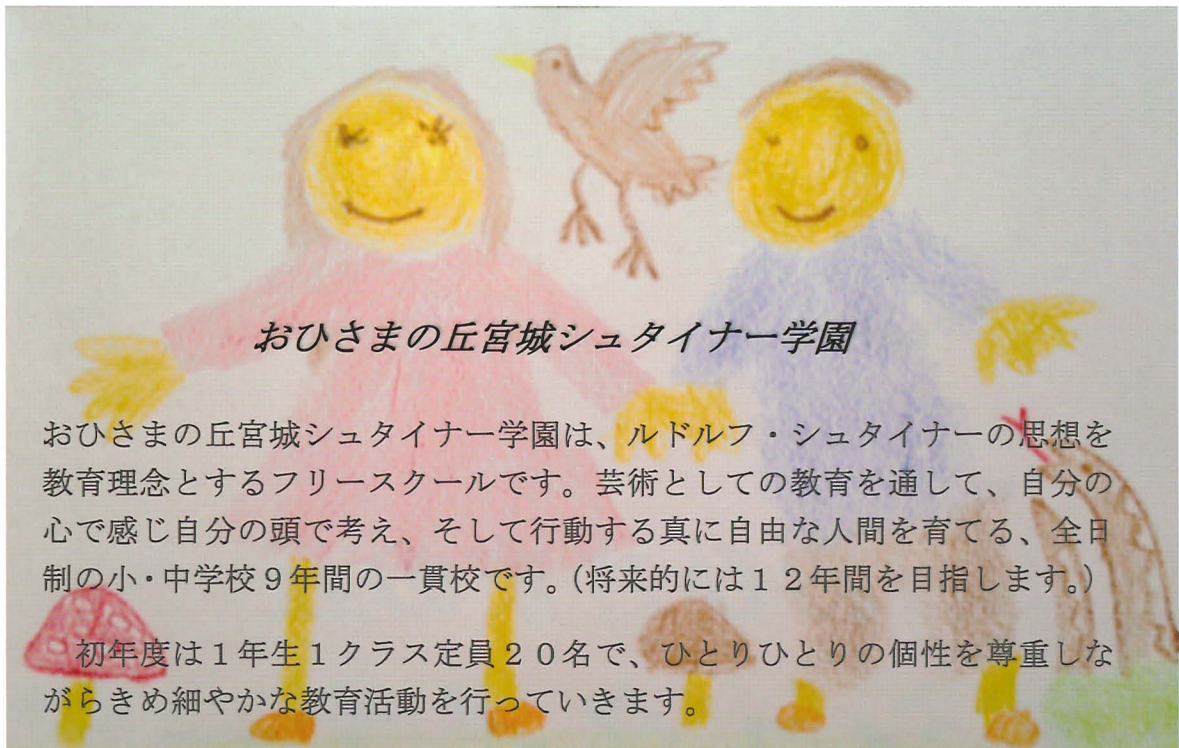 おひさまの丘宮城シュタイナー学園
おひさまの丘宮城シュタイナー学園は、ルドルフ・シュタイナーの思想を
教育理念とするフリースクールです。芸術としての教育を通して、自分の
心で感じ自分の頭で考え、そして行動する真に自由な人間を育てる、全日
制の小・中学校９年間の一貫校です。（将来的には１２年間を目指します。）
初年度は１年生１クラス定員２０名で、ひとりひとりの個性を尊重しな
がらきめ細やかな教育活動を行っていきます。